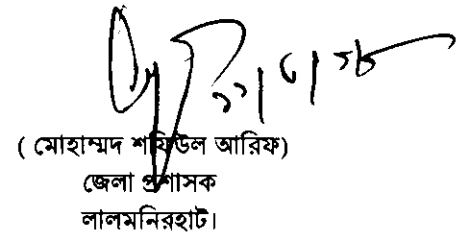 ( মোহাম্মদ শফিউল আরিফ)
জেলা প্রশাসক
লালমনিরহাট।